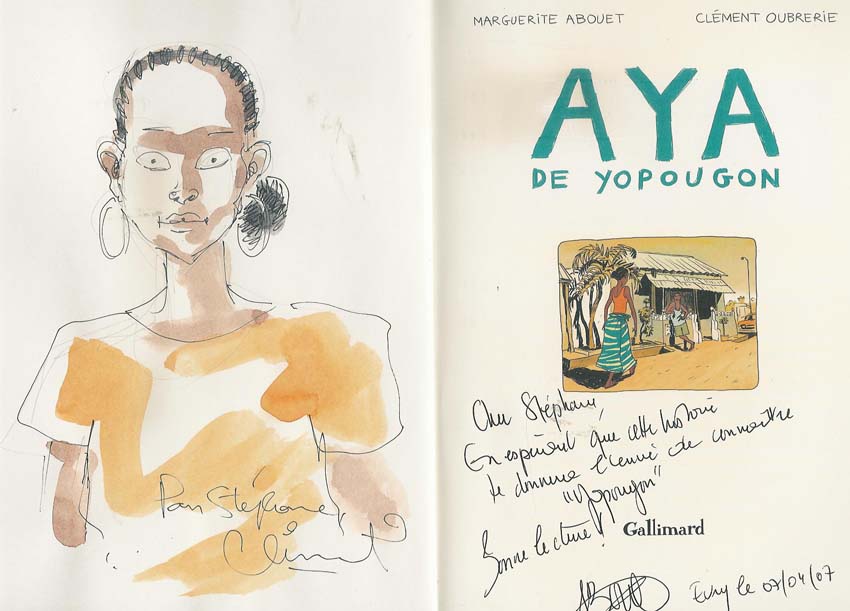 Pour Stéphane,
Clément
MARGUERITE ABOUET
CLÉMENT OUBRERIE
AYA
DE YOPOUGON
Cher Stéphane,
En espérant que cette histoire
te donnera l'envie de connaître
"Yopougon"
Bonne lecture!
Gallimard
Evry le 07/04/07